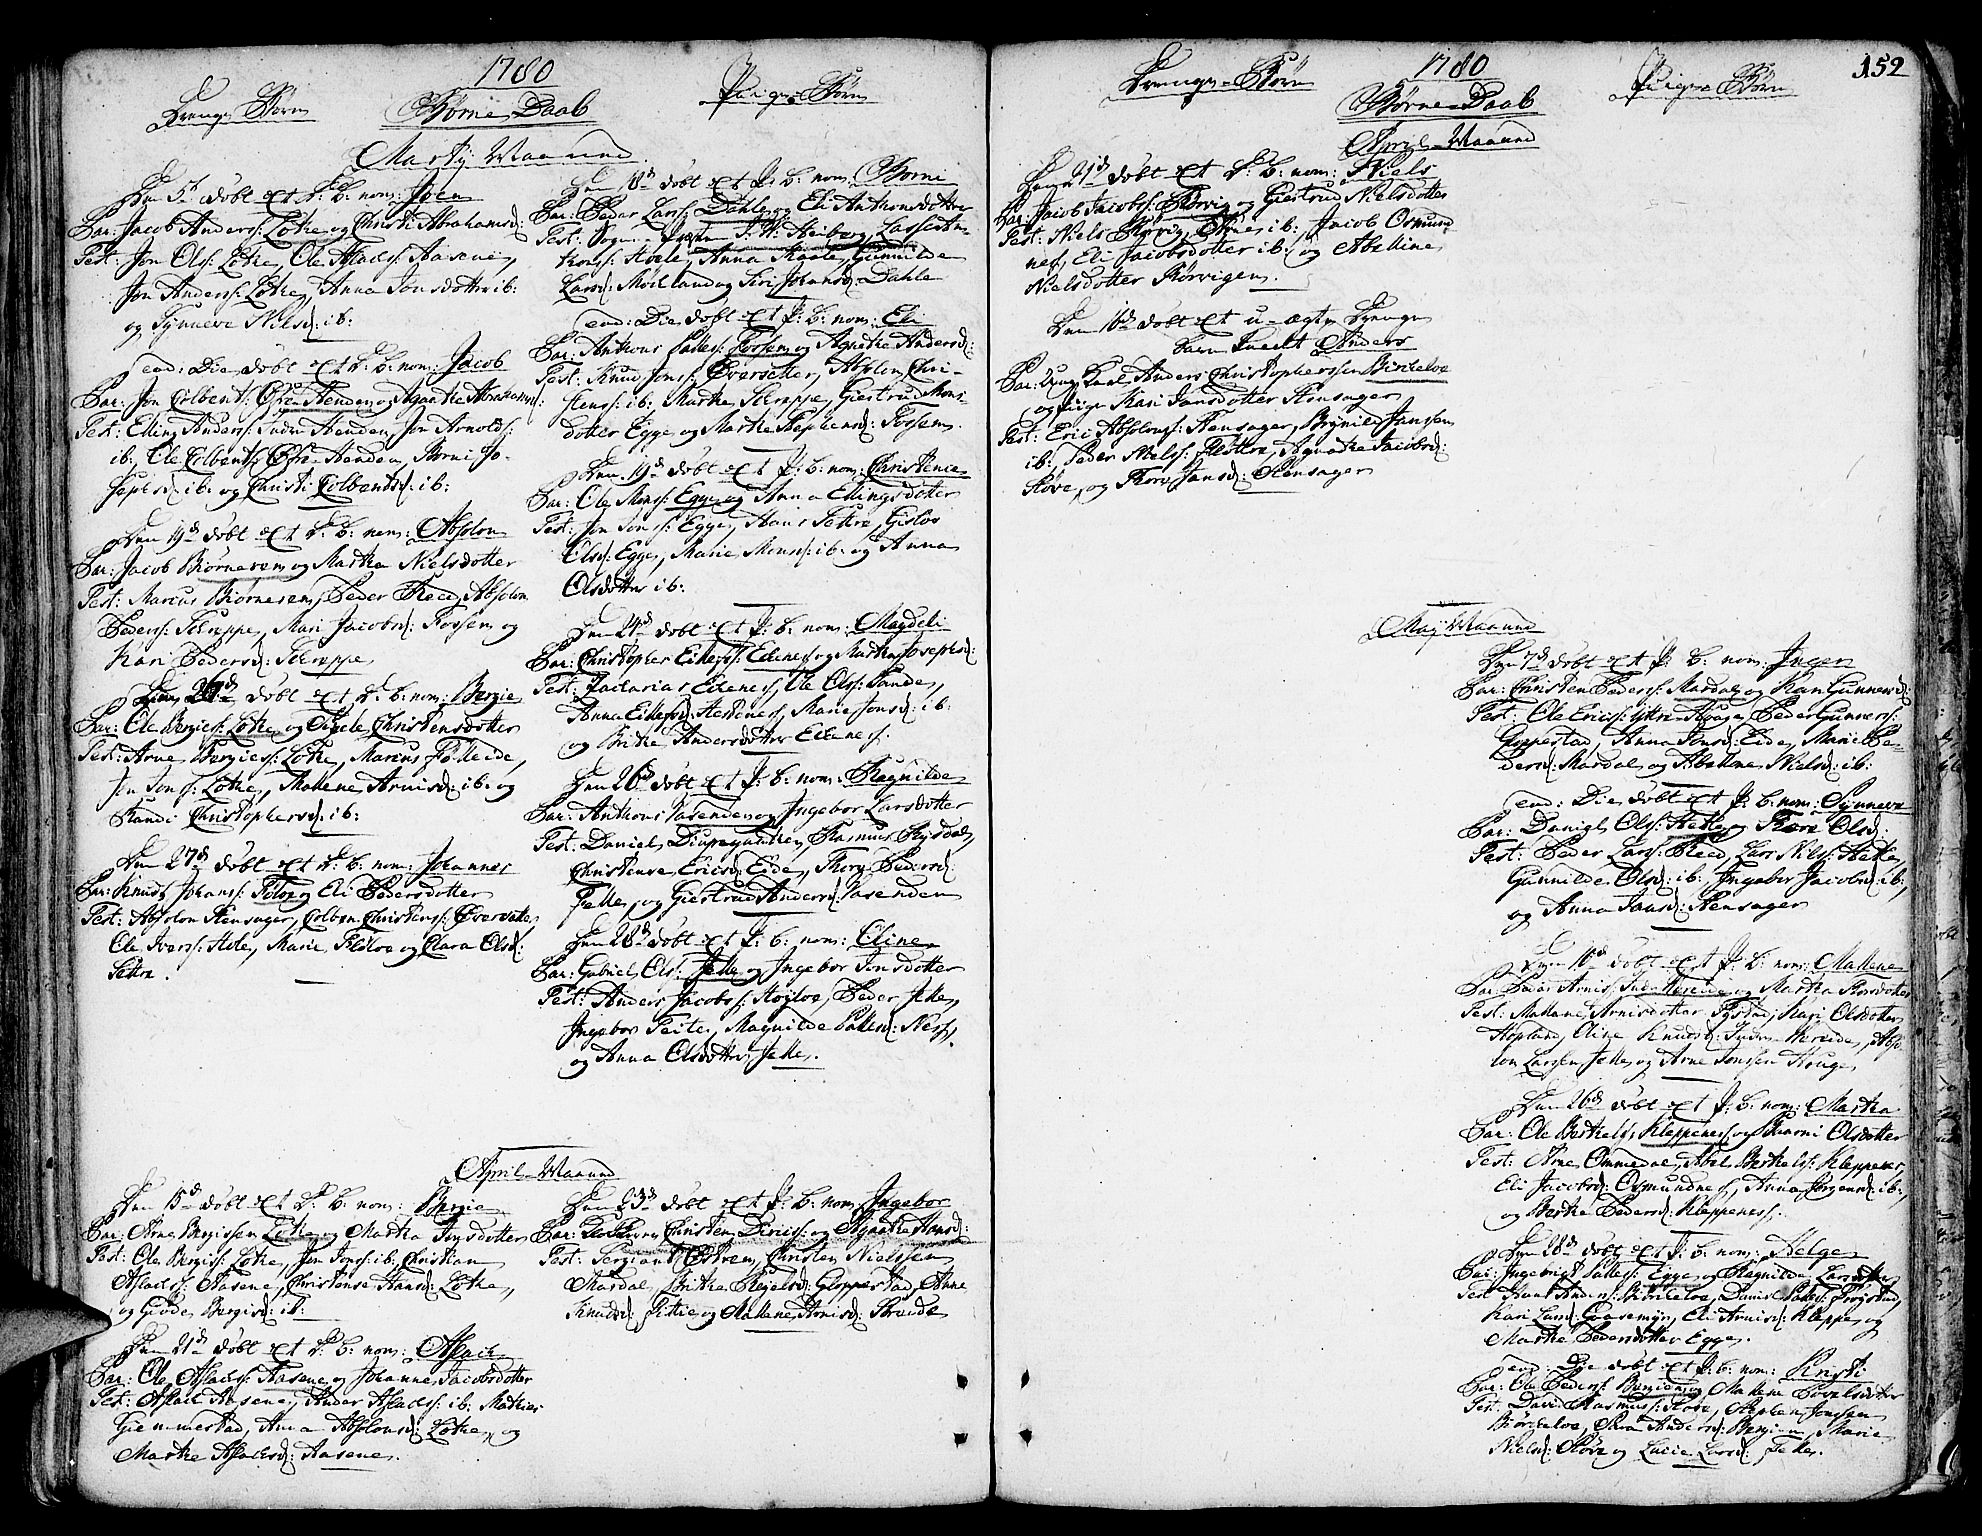 1780
Drenge Børn
Børne Daab
Piige Børn
Martij Maaned
Den 5t døbt et D: B: nom: Joen
Par: Jacob Anders: Lotke og Christi Abrahamsd:
Test: Jon Ols: Lotke, Ole Aslachs: Aasene,
Jon Anders: Lotke, Anna Jonsdotter ib:
og Synneve Nielsd: ib:
eod: Die, døbt et D: B: nom: Jacob
Par: Jon Colbents: Øfre Henden og Agnethe Abrahamsd:
Test: Elling Anders: Indre Henden, Jon Arnolds:
ib:, Ole Colbents: Øfre Henden, Borni Jo-
sephsd: ib: og Christi Colbentsd: ib:
Den 19d døbt et D: B: nom: Absolon
Par: Jacob Biørnereem og Martha Nielsdotter
Test: Marcus Biørnereem, Peder Reed, Absolon
Peders: Skreppe, Mari Jacobsd: Fossem og
Kari Pedersd: Skreppe
Den 26d døbt et D: B: nom: Bergie
Par: Ole Bergies: Lotke og Sigele Christensdotter
Test: Arne Bergies: Lotke, Marius Følleide,
Jon Jons: Lotke, Malene Arnisd: ib: og
Randi Christophersd: ib:
Den 27d døbt et D: B: nom: Johannes
Par: Knud Johans: og Eli Pedersdotter
Test: Absolon Hensager, Colben Christens: Eversetter,
Ole Ivers: Hole, Marie Fløtre og Clara Olsd:
Settre.
Den 18d døbt et P: B: nom: Borni
Par: Peder Lars: Dahle og Eli Anthonsdotter
Test: Sogne Præsten J: H: Heiberg, Lasse An-
thons: Hoele, Anna Kaale, Gunnilde
Larsd: Moeland og Siri Johansd: Dahle
eod: Die, døbt et P: B: nom: Eli
Par: Anthons Salles: Fossem og Agnethe Andersd:
Test: Knud Jons: Eversetter, Absolon Chri-
stens: ib:, Marthe Skreppe, Giertrud Mons-
dotter Egge og Marthe Stephensd: Fossem.
Den 19d døbt et P: B: nom: Christense
Par: Ole Mons: Egge og Anna Ellingsdotter
Test: Jon Jons: Egge, Hans Settre, Gislov
Olsd: Egge, Marie Monss: ib: og Anna
Olsdotter ib:
Den 24d døbt et P: B: nom: Magdeli
Par: Christopher Eilless: Eidenes og Marthe Josephsd:
Test: Zacharias Eidenes, Ole Ols: Sande,
Anna Eillesd: Hestenes, Marie Jonsd: ib:
og Brithe Andersdotter Eidenes.
Den 26d døbt et P: B: nom: Ragnilde
Par: Anthoni Vasenden og Ingebor Larsdotter
Test: Daniel, Rasmus Rysdal,
Christense Ericsd: Eide, Thore Pedersd:
Felle, og Giertrud Andersd: Vasenden
Den 28d døbt et P: B: nom: Eline
Par: Gabriel Ols: Felle og Ingebor Jonsdotter
Test: Anders Jacobs: Høyloe, Peder Felle,
Ingebor Peite, Magnilde Sallesd: Ness,
og Anna Olsdotter Felle.
April Maaned
Den 15d døbt et D: B: nom: Bergie
Par: Arne Bergissen Lotke og Martha Jonsdotter
Test: Ole Bergis: Lotke, Jon Jons: ib: Christian
Aslachs: Aasene, Christense Hansd: Lotke,
og Giøde Bergisd: ib:
Den 21d døbt et D: B: nom: Aslach
Par: Ole Aslachs: Aasene og Johanne Jacobsdotter
Test: Aslach Aasene, Ander Aslachs: ib: Mathias
Giemmestad, Anna Absolonsd: Lotke, og
Marthe Aslachsd: Aasene.
Den 23d døbt et P: B: nom: Ingebor
Par: Christen Dirics: og Agnethe Hansd:
Test: Sergiant Østrem, Christen Nielssen
Mardal, Brithe Reielsd: Gloppestad, Anne
Knudsd: og Malene Arnisd: Strande
152
Drenge Børn
1780
Piige Børn
Børne Daab
April Maaned
Den 21d døbt et D: B: nom: Niels
Par: Jacob Jacobs: Rørvig og Giertrud Nielsdotter
Test: Niels Rørvig, Arne ib:, Jacob Osmund-
nes, Eli Jacobsdotter ib: og Abeline
Nielsdotter Rørvigen.
Den 16d døbt et u-ægte Drenge
Barn kaldt Anders
Par: Ung Karl Anders Christopherssen Birkeloe
og Piige Kari Jansdotter Hensager
Test: Eric Absolons: Hensager, Brynild Janssen
ib: Peder Niels: Fløttre, Agnethe Jacobsd:
Støve, og Thore Jansd: Hensager
Maj Maaned
Den 7d døbt et P: B: nom: Inger
Par: Christen Peders: Mardal og Kari Gunnersd:
Test: Ole Erics: Ytre Hauge, Peder Gunners:
Gloppestad, Anna Jonsd: Eide, Marie Pe-
dersd: Mardal og Abeline Nielsd: ib:
eod: Die, døbt et P: B: nom: Synneve
Par: Daniel Ols: Hetle og Thore Olsd:
Test: Peder Lars: Reed, Lars Niels: Hetle,
Gunnilde Olsd: ib:, Ingebor Jacobsd: ib:,
og Anna Jansd: Hensager
Den 10d døbt et P: B: nom: Malene
Par: Peder Arnis: Indre Hereide og Martha Rasdotter
Test: Malene Arnisdotter Fiøstad, Kari Olsdotter
Hopland, Eline Knudsd: Indre Hereide, Abso-
lon Larssen Felle og Arne Jonssen Hauge.
Den 26d døbt et P: B: nom: Martha
Par: Ole Berthels: Kleppenes og Barni Olsdotter
Test: Arne Ommedal, Abel Berthels: Kleppenes,
Eli Jacobsd: Osmundnes, Anna Jørgensd: ib:,
og Berthe Pedersd: Kleppenes.
Den 28d døbt et P: B: nom: Helge
Par: Ingebrigt Salles: Egge og Ragnilde Larsdotter
Test: Knud Anders: Birkeloe, Daniel Salles: Frøystad,
Kari Larsd: Gaasemyr, Eli Arnisd: Kleppe, og
Marthe Pedersdotter Egge.
eod: Die døbt et P: B: nom: Kristi
Par: Ole Peders: Bergien og Malene Povelsdotter
Test: David Rasmus: Støve, Stephen Jonssen
Biørkeloe, Siva Andersd: Bergien, Marie
Nielsd: Støve og Lucie Larsd: Felle.